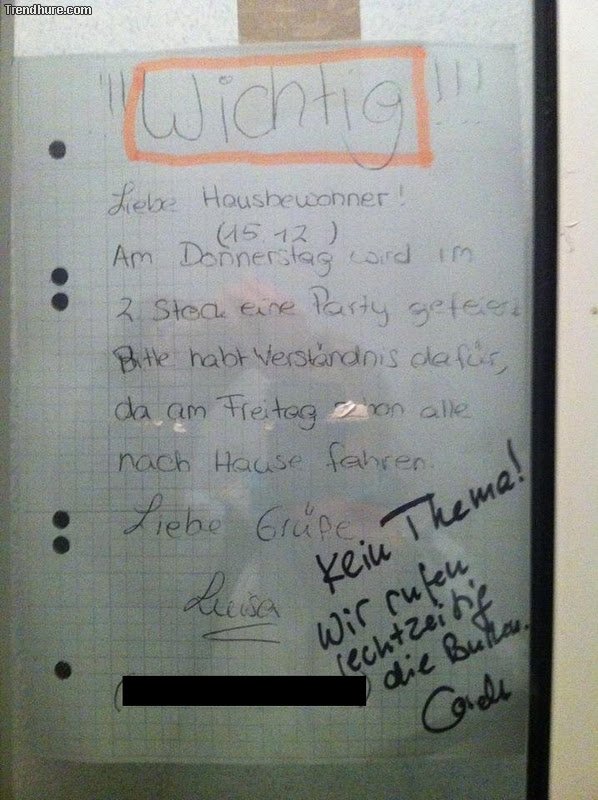 Trendhure.com
!!! Wichtig !!!
Liebe Hausbewohner!
(15 12 )
Am Donnerstag wird im
2 Stock eine Party gefeiert
Bitte habt Verständnis dafür,
da am Freitag schon alle
nach Hause fahren.
Liebe Grüße
Luisa
Kein Thema!
Wir rufen
rechtzeitig
die Bullen.